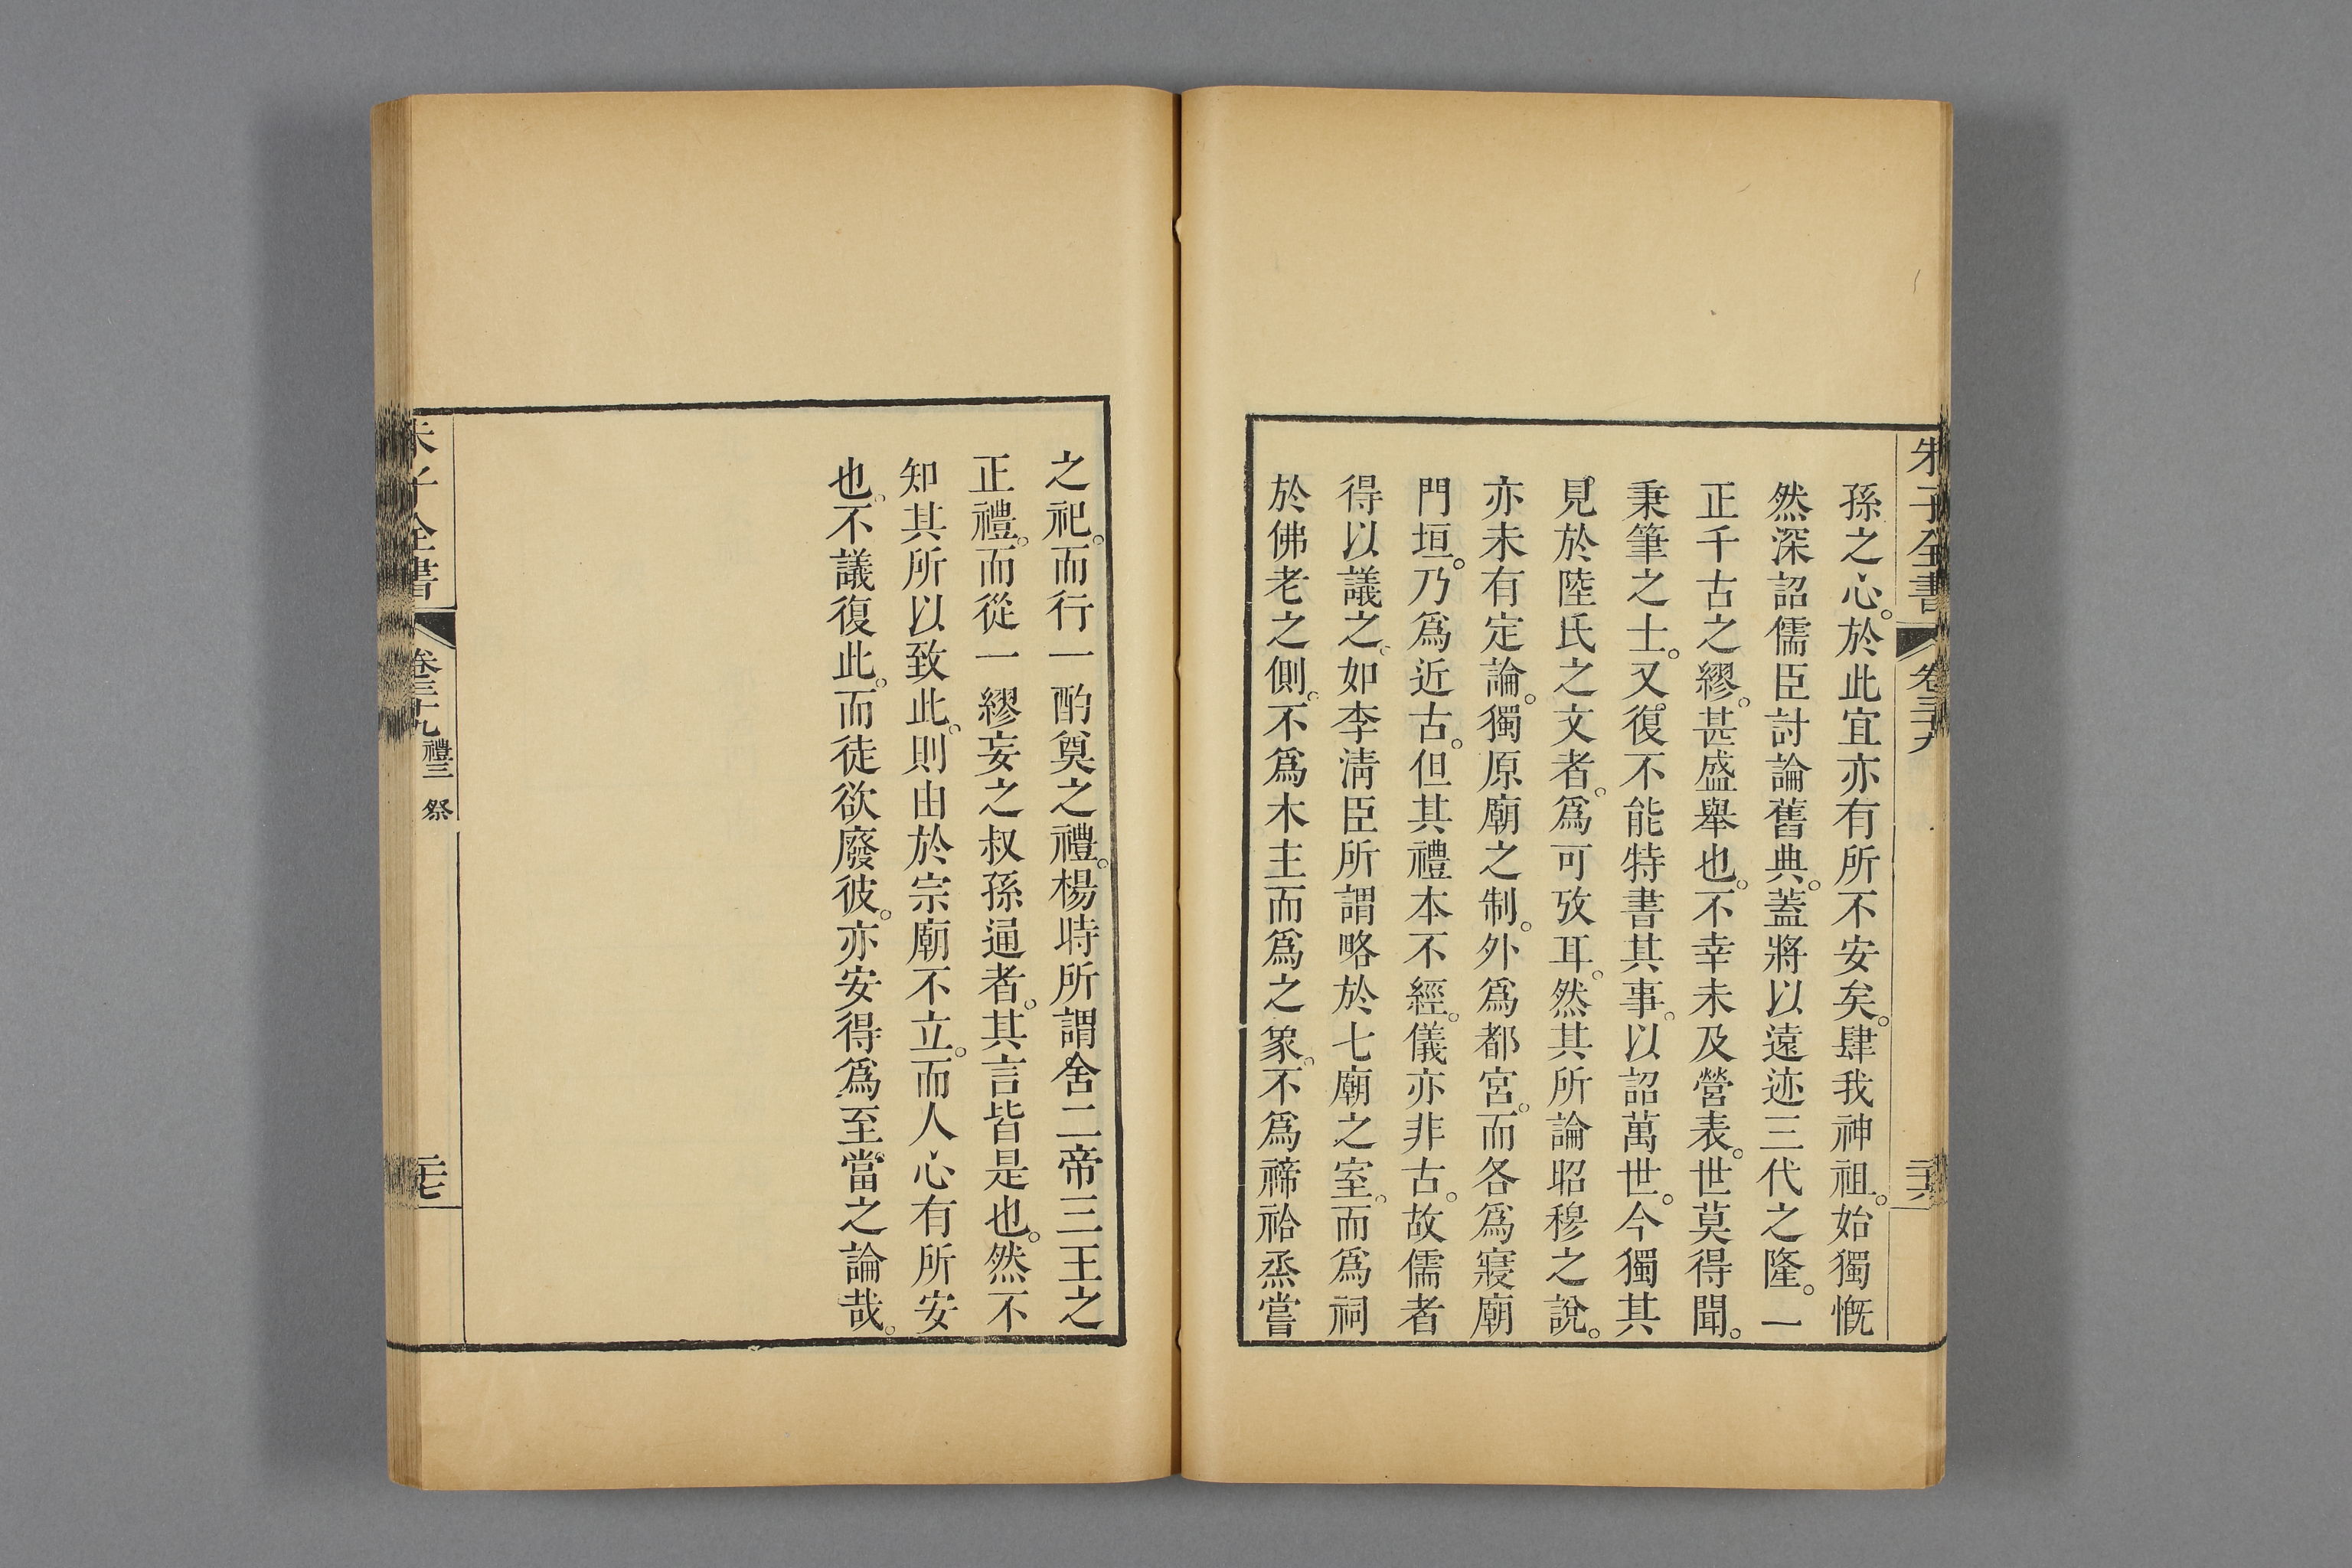 朱子全書 卷三十九
孫之心。於此宜亦有所不安矣。肆我神祖。始獨慨
然深詔儒臣討論舊典。蓋將以遠迹三代之隆。一
正千古之繆。甚盛舉也。不幸未及營表。世莫得聞。
秉筆之士。又復不能特書其事。以詔萬世。今獨其
見於陸氏之文者。爲可攷耳。然其所論昭穆之說。
亦未有定論。獨原廟之制。外爲都宮。而各爲寢廟
門垣。乃爲近古。但其禮本不經。儀亦非古。故儒者
得以議之。如李淸臣所謂略於七廟之室。而爲祠
於佛老之側。不爲木主而爲之象。不爲禘祫烝嘗
之祀。而行一酌奠之禮。楊時所謂舍二帝三王之
正禮。而從一繆妄之叔孫通者。其言皆是也。然不
知其所以致此。則由於宗廟不立。而人心有所安
也。不議復此。而徒欲廢彼。亦安得爲至當之論哉。
朱子全書 卷三十九 禮三 祭 二十七